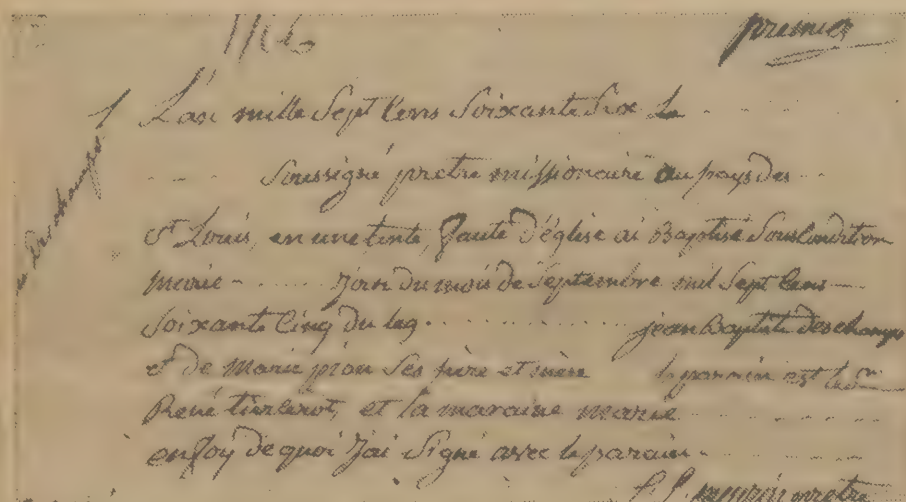 1766
premier
deschamps
L'an mille Sept Cens Soixante Six le
Soussigné prêtre missionaire au pays des
St Louis, en une tente, faute d'église ai Baptisé Sous Condition
marie jour du mois de Septembre mil Sept Cens
Soixante Cinq du leg jean Baptiste deschamps
et de Marie pion Ses père et mère le parrain est
René et la maraine marie
en foy de quoi J'ai Signé avec le parain
meurin prêtre